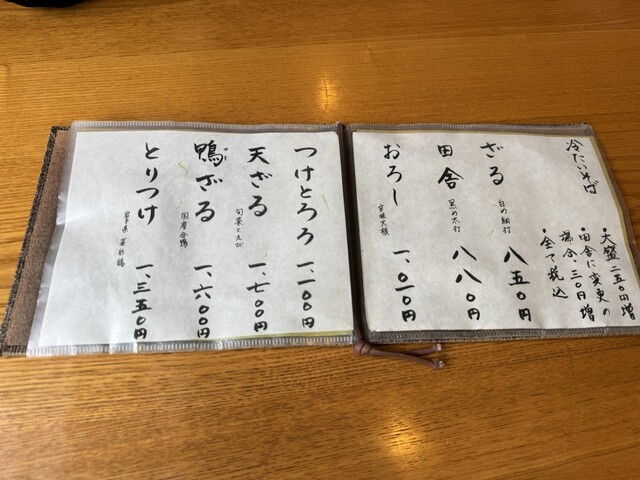 冷たいそば
・大盛二五〇円増
・田舎に変更の
場合、三〇円増
・全て税込
ざる 白め細打 八五〇円
田舎 黒め太打 八八〇円
おろし 辛味大根 一、〇一〇円
つけとろろ 一、一〇〇円
天ざる 旬菜とえび 一、七〇〇円
鴨ざる 国産合鴨 一、六〇〇円
とりつけ 岩手県 菜彩鶏 一、三五〇円